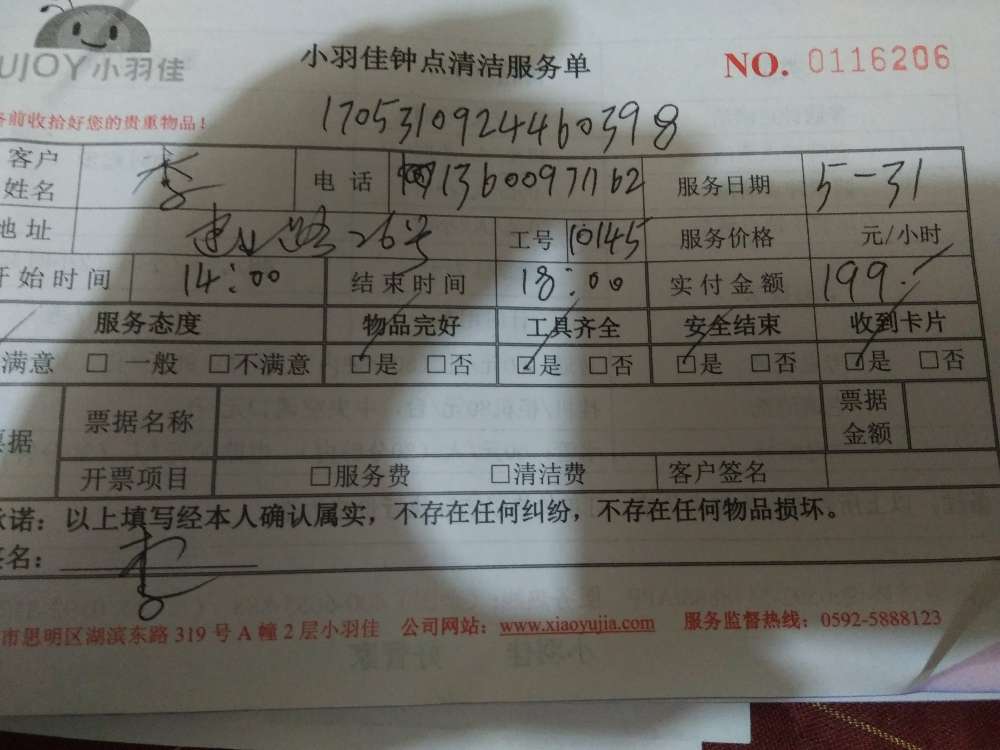 UJOY小羽佳
小羽佳钟点清洁服务单
NO. 0116206
务前收拾好您的贵重物品!
1705310924460398
客户姓名 李 电话 13600971162 服务日期 5-31
地址 路26号 工号 10145 服务价格 元/小时
开始时间 14:00 结束时间 18:00 实付金额 199.
服务态度 物品完好 工具齐全 安全结束 收到卡片
满意 □ 一般 □不满意 ☑是 □否 ☑是 □否 ☑是 □否 ☑是 □否
票据 票据名称 票据金额
开票项目 □服务费 □清洁费 客户签名
承诺：以上填写经本人确认属实，不存在任何纠纷，不存在任何物品损坏。
签名：李
市思明区湖滨东路 319 号 A 幢 2 层小羽佳 公司网站：www.xiaoyujia.com 服务监督热线：0592-5888123